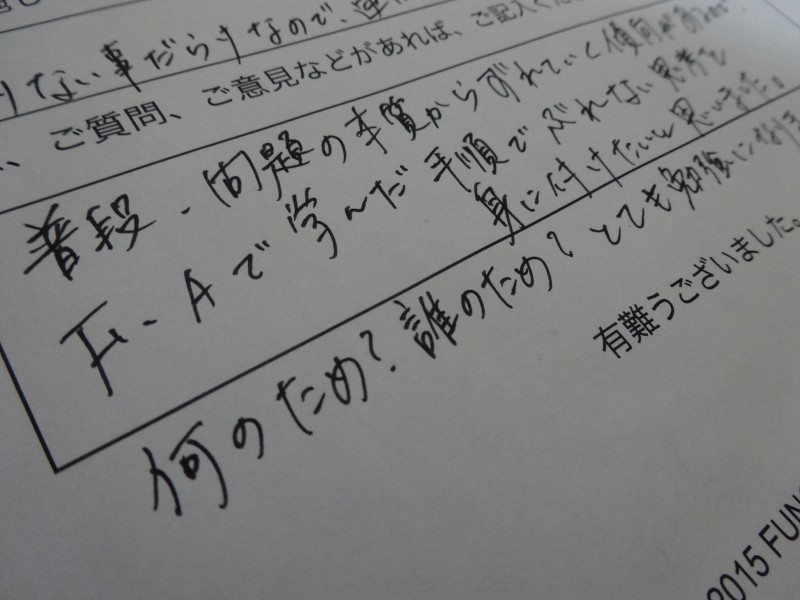 りない事だらけなので、
、ご質問、ご意見などがあれば、ご記入くだ
普段、問題の本質からずれていく傾向があるので、
F、Aで学んだ手順でぶれない思考を
身に付けたいと思いました。
何のため?誰のため?とても勉強になりま
有難うございました。
2015 FUN